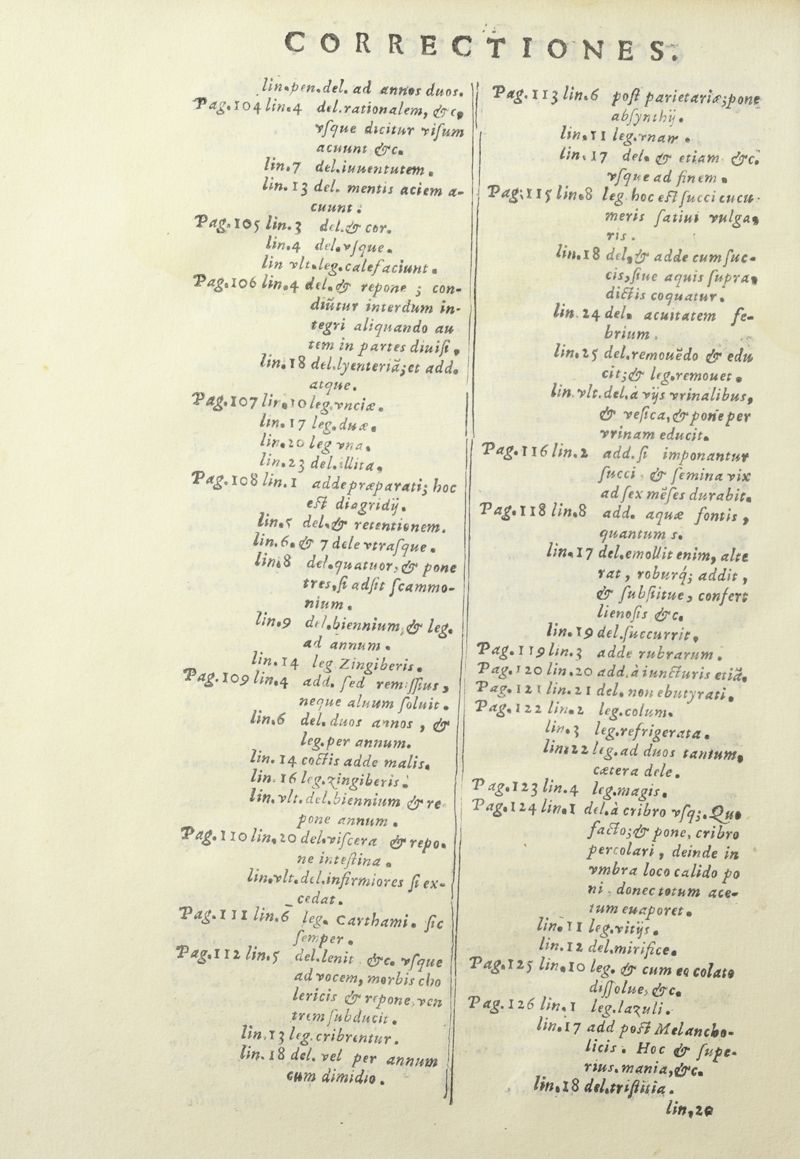 CORRECTIONES.
lin.pen.del. ad annos duos.
Pag.104 lin.4 del.rationalem, &c,
vſque dicitur viſum
acuunt &c.
lin.7 del.iuuentutem.
lin.13 del. mentis aciem a-
cuunt.
Pag.105 lin.3 del.& cor.
lin.4 del.vſque.
lin vlt.leg.calefaciunt.
Pag.106 lin.4 del.& repone ; con-
diũtur interdum in-
tegri aliquando au
tem in partes diuiſi,
lin.18 del.lyenteriã;et add.
atque.
Pag.107 lin.10 leg.vnciæ.
lin.17 leg.duæ.
lin.20 leg vna.
lin.23 del.illita,
Pag.108 lin.1 adde præparati; hoc
eſt diagridij.
lin.5 del.& retentionem.
lin.6.& 7 dele vtraſque.
lin.8 del.quatuor,& pone
tres,ſi adſit ſcammo-
nium.
lin.9 del.biennium,& leg.
ad annum.
lin.14 leg Zingiberis.
Pag.109 lin.4 add. ſed remiſſius,
neque aluum ſoluit.
lin.6 del. duos annos, &
leg.per annum.
lin.14 coctis adde malis.
lin.16 leg.zingiberis.
lin.vlt.del.biennium & re
pone annum.
Pag.110 lin.20 del.viſcera & repo-
ne inteſtina.
lin.vlt.del.infirmiores ſi ex-
cedat.
Pag.111 lin.6 leg. Carthami. ſic
ſemper.
Pag.112 lin.5 del.lenit &c. vſque
ad vocem, morbis cho
lericis & repone,ven
trem ſubducit.
lin.13 leg.cribrentur.
lin.18 del. vel per annum
cum dimidio.
Pag.113 lin.6 poſt parietariæ;pone
abſynthij.
lin.11 leg.vnam.
lin.17 del. & etiam &c.
vſque ad finem.
Pag.115 lin.8 leg hoc eſt ſucci cucu-
meris ſatiui vulga,
ris.
lin.18 del,& adde cum ſuc-
cis,ſiue aquis ſupra,
dictis coquatur.
lin.24 del. acuitatem fe-
brium.
lin.25 del.remouẽdo & edu
cit;& leg.remouet.
lin.vlt.del.à vijs vrinalibus,
& veſica,& pone per
vrinam educit.
Pag.116 lin.2 add.ſi imponantur
ſucci & ſemina vix
ad ſex mẽſes durabit.
Pag.118 lin.8 add. aquæ fontis,
quantum s.
lin.17 del.emollit enim, alte
rat, roburq; addit,
& ſubſtitue, confert
lienoſis &c.
lin.19 del.ſuccurrit,
Pag.119 lin.3 adde rubrarum.
Pag.120 lin.20 add.à iuncturis etiã.
Pag.121 lin.21 del. non ebutyrati.
Pag.122 lin.2 leg.colum.
lin.3 leg.refrigerata.
lin.22 leg.ad duos tantum,
cætera dele.
Pag.123 lin.4 leg.magis.
Pag.124 lin.1 del.à cribro vſq;.Quo
facto;& pone, cribro
percolari, deinde in
vmbra loco calido po
ni, donec totum ace-
tum euaporet.
lin.11 leg.vitijs.
lin.12 del.mirifice.
Pag.125 lin.10 leg. & cum eo colato
diſſolue,&c.
Pag.126 lin.1 leg.lazuli.
lin.17 add poſt Melancho-
licis. Hoc & ſupe-
rius.mania,&c.
lin.18 del.triſtitia.
lin,20